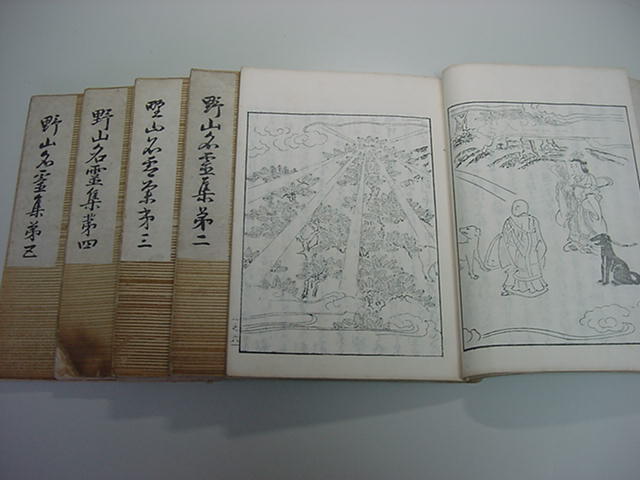 野山名霊集第二
野山名霊集第三
野山名靈集第四
野山名靈集第五